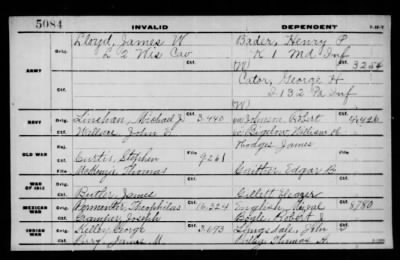 5084
INVALID
DEPENDENT
Lloyd, James W
Bader, Henry P
Orig.
L 2 Wis Cav
K 1 Md Inf
Ctf.
(W)
3256
ARMY
Cator, George H
Orig.
D 132 Pa Inf
Ctf.
(W)
NAVY
Orig.
Linehan, Michael J
Ctf.
3440
Johnson, Robert
4426
Wallace John
Bigelow, William
OLD WAR
Rej.
Hodges, James
Curtis, Stephen
File
9261
File
Thomas
Guitter Edgar B
WAR OF 1812
Orig.
Ctf.
Butler James
Gillett
MEXICAN WAR
Orig.
Parmenter, Theophilas
Ctf.
16,324
English,
8780
Camper Joseph
Boyle, Robert J
INDIAN WAR
Orig.
Kelley George
Ctf.
3693
John
Perry, James M.
Thomas A.